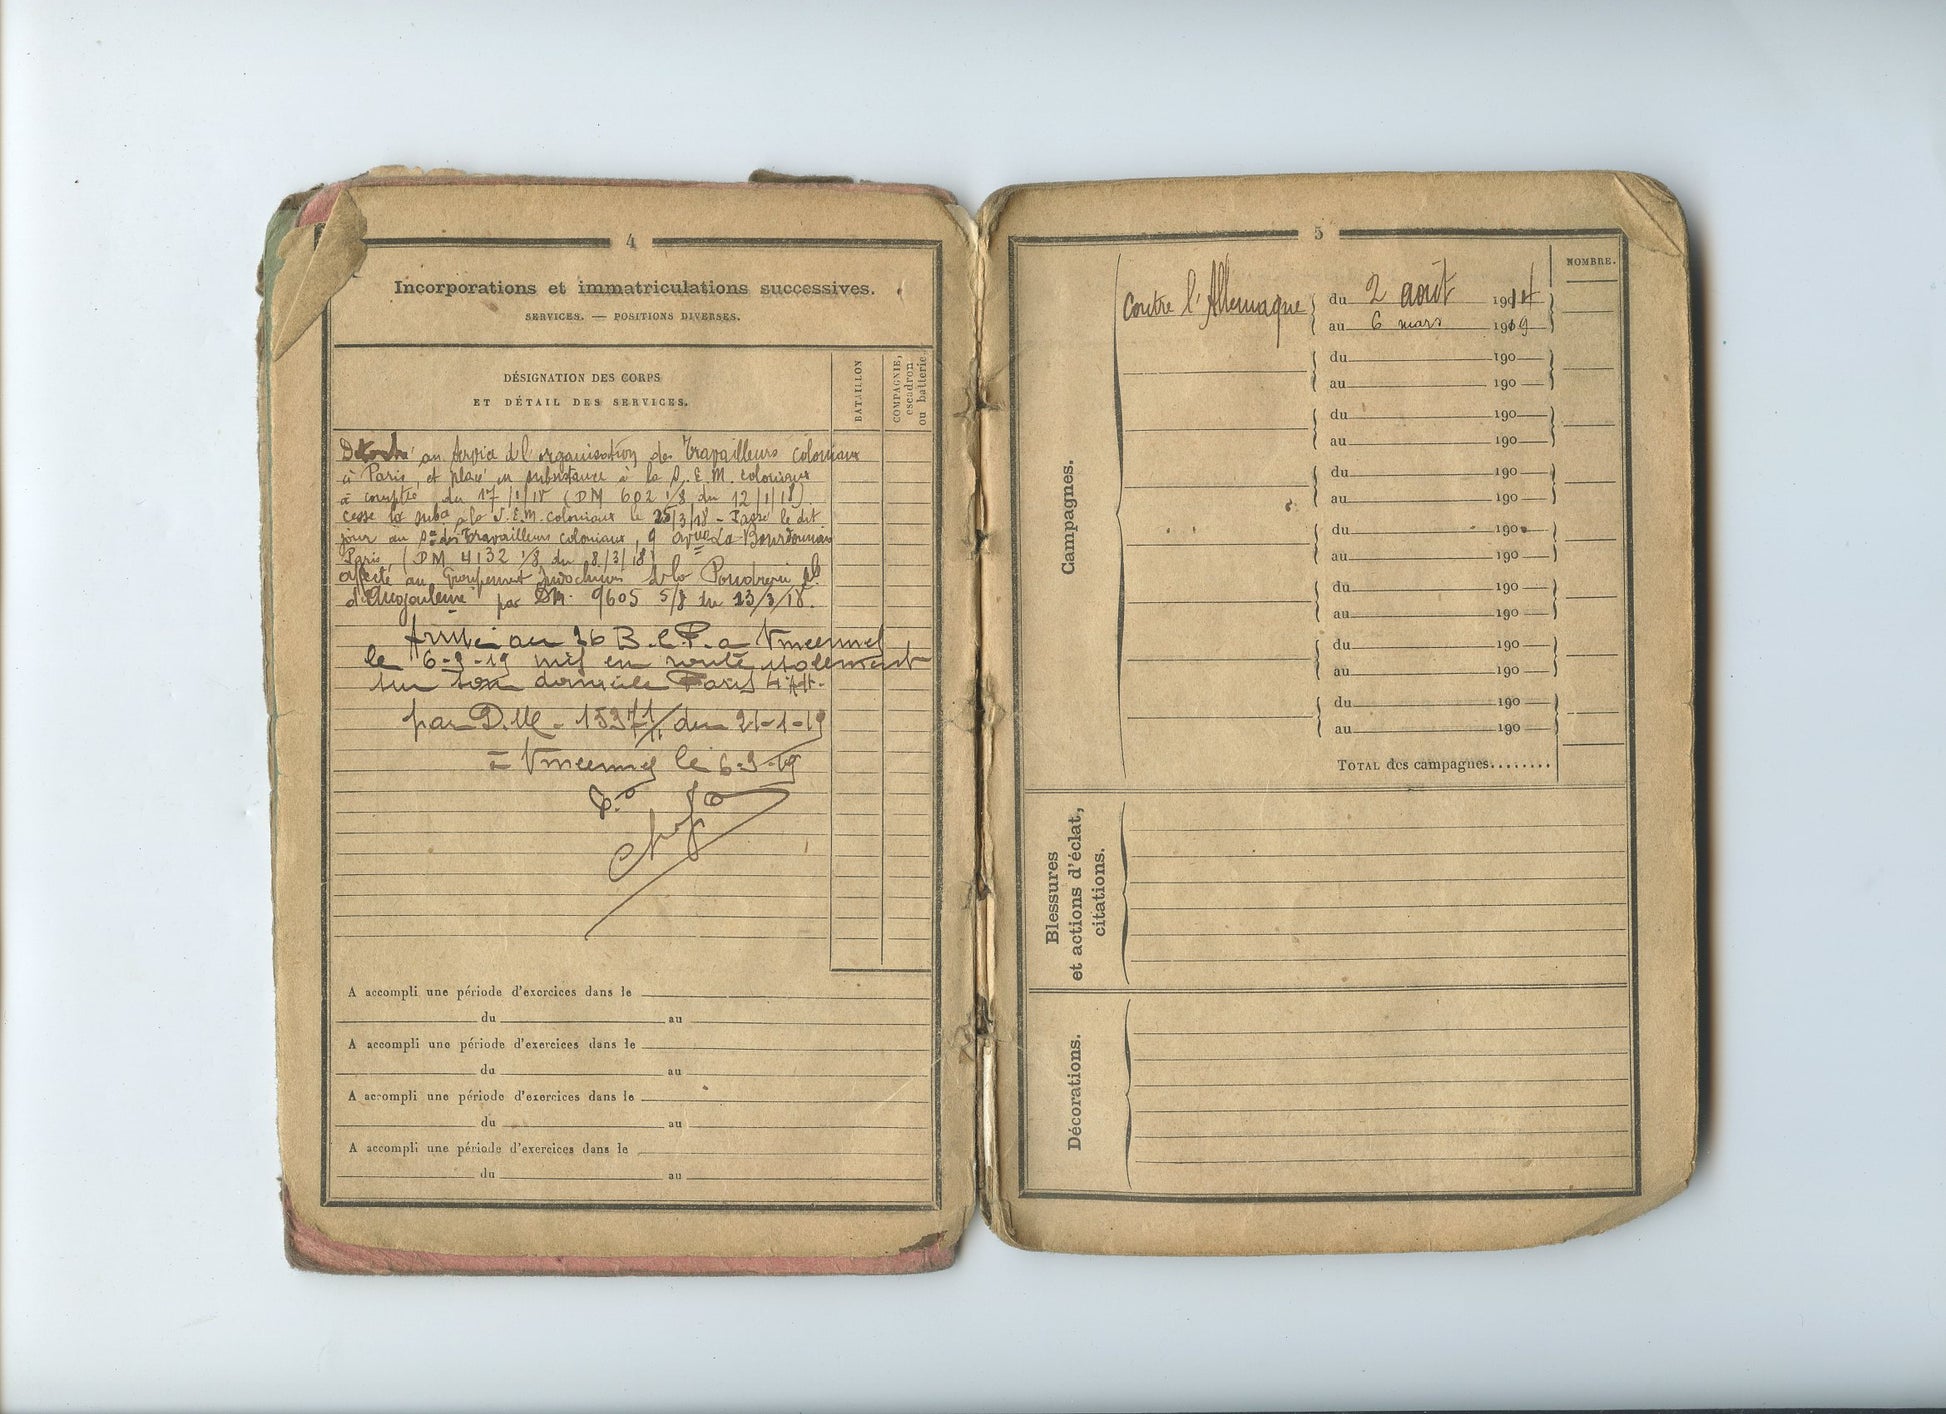 4
Incorporations et immatriculations successives.
SERVICES. — POSITIONS DIVERSES.
DÉSIGNATION DES CORPS
ET DÉTAIL DES SERVICES.
BATAILLON
COMPAGNIE,
escadron
ou batterie.
au Service de l'organisation des Travailleurs coloniaux
à Paris, et placé en subsistance à la S.E.M. coloniaux
à compter du 17/1/18 (DM 602 1/8 du 12/1/18)
cesse la subce à la S.E.M. coloniaux le 25/3/18 - Passé le dit
jour au Sce des Travailleurs coloniaux, 9 avue La Bourdonnais
Paris, (DM 4132 1/8 du 8/3/18)
affecté au Groupement Indochinois de la Poudrerie
d'Angoulême par DM. 9605 5/8 du 23/3/18.
Arrivé au 26 B.C.P. a Vincennes
le 6-3-19 mis en route isolement
sur son domicile Paris 4 Art.
par D.M. - 15371/11 du 21-1-19
= Vincennes le 6-3-19
A accompli une période d'exercices dans le
du au
A accompli une période d'exercices dans le
du au
A accompli une période d'exercices dans le
du au
A accompli une période d'exercices dans le
du au
5
NOMBRE.
Campagnes.
Contre l'Allemagne
du 2 août 1914
au 6 mars 1919
du 190
au 190
du 190
au 190
du 190
au 190
du 190
au 190
du 190
au 190
du 190
au 190
du 190
au 190
TOTAL des campagnes........
Blessures
et actions d'éclat,
citations.
Décorations.